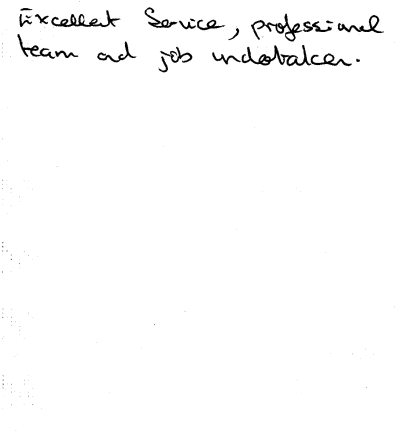 Excellent Service, professional
team and job undertaken.